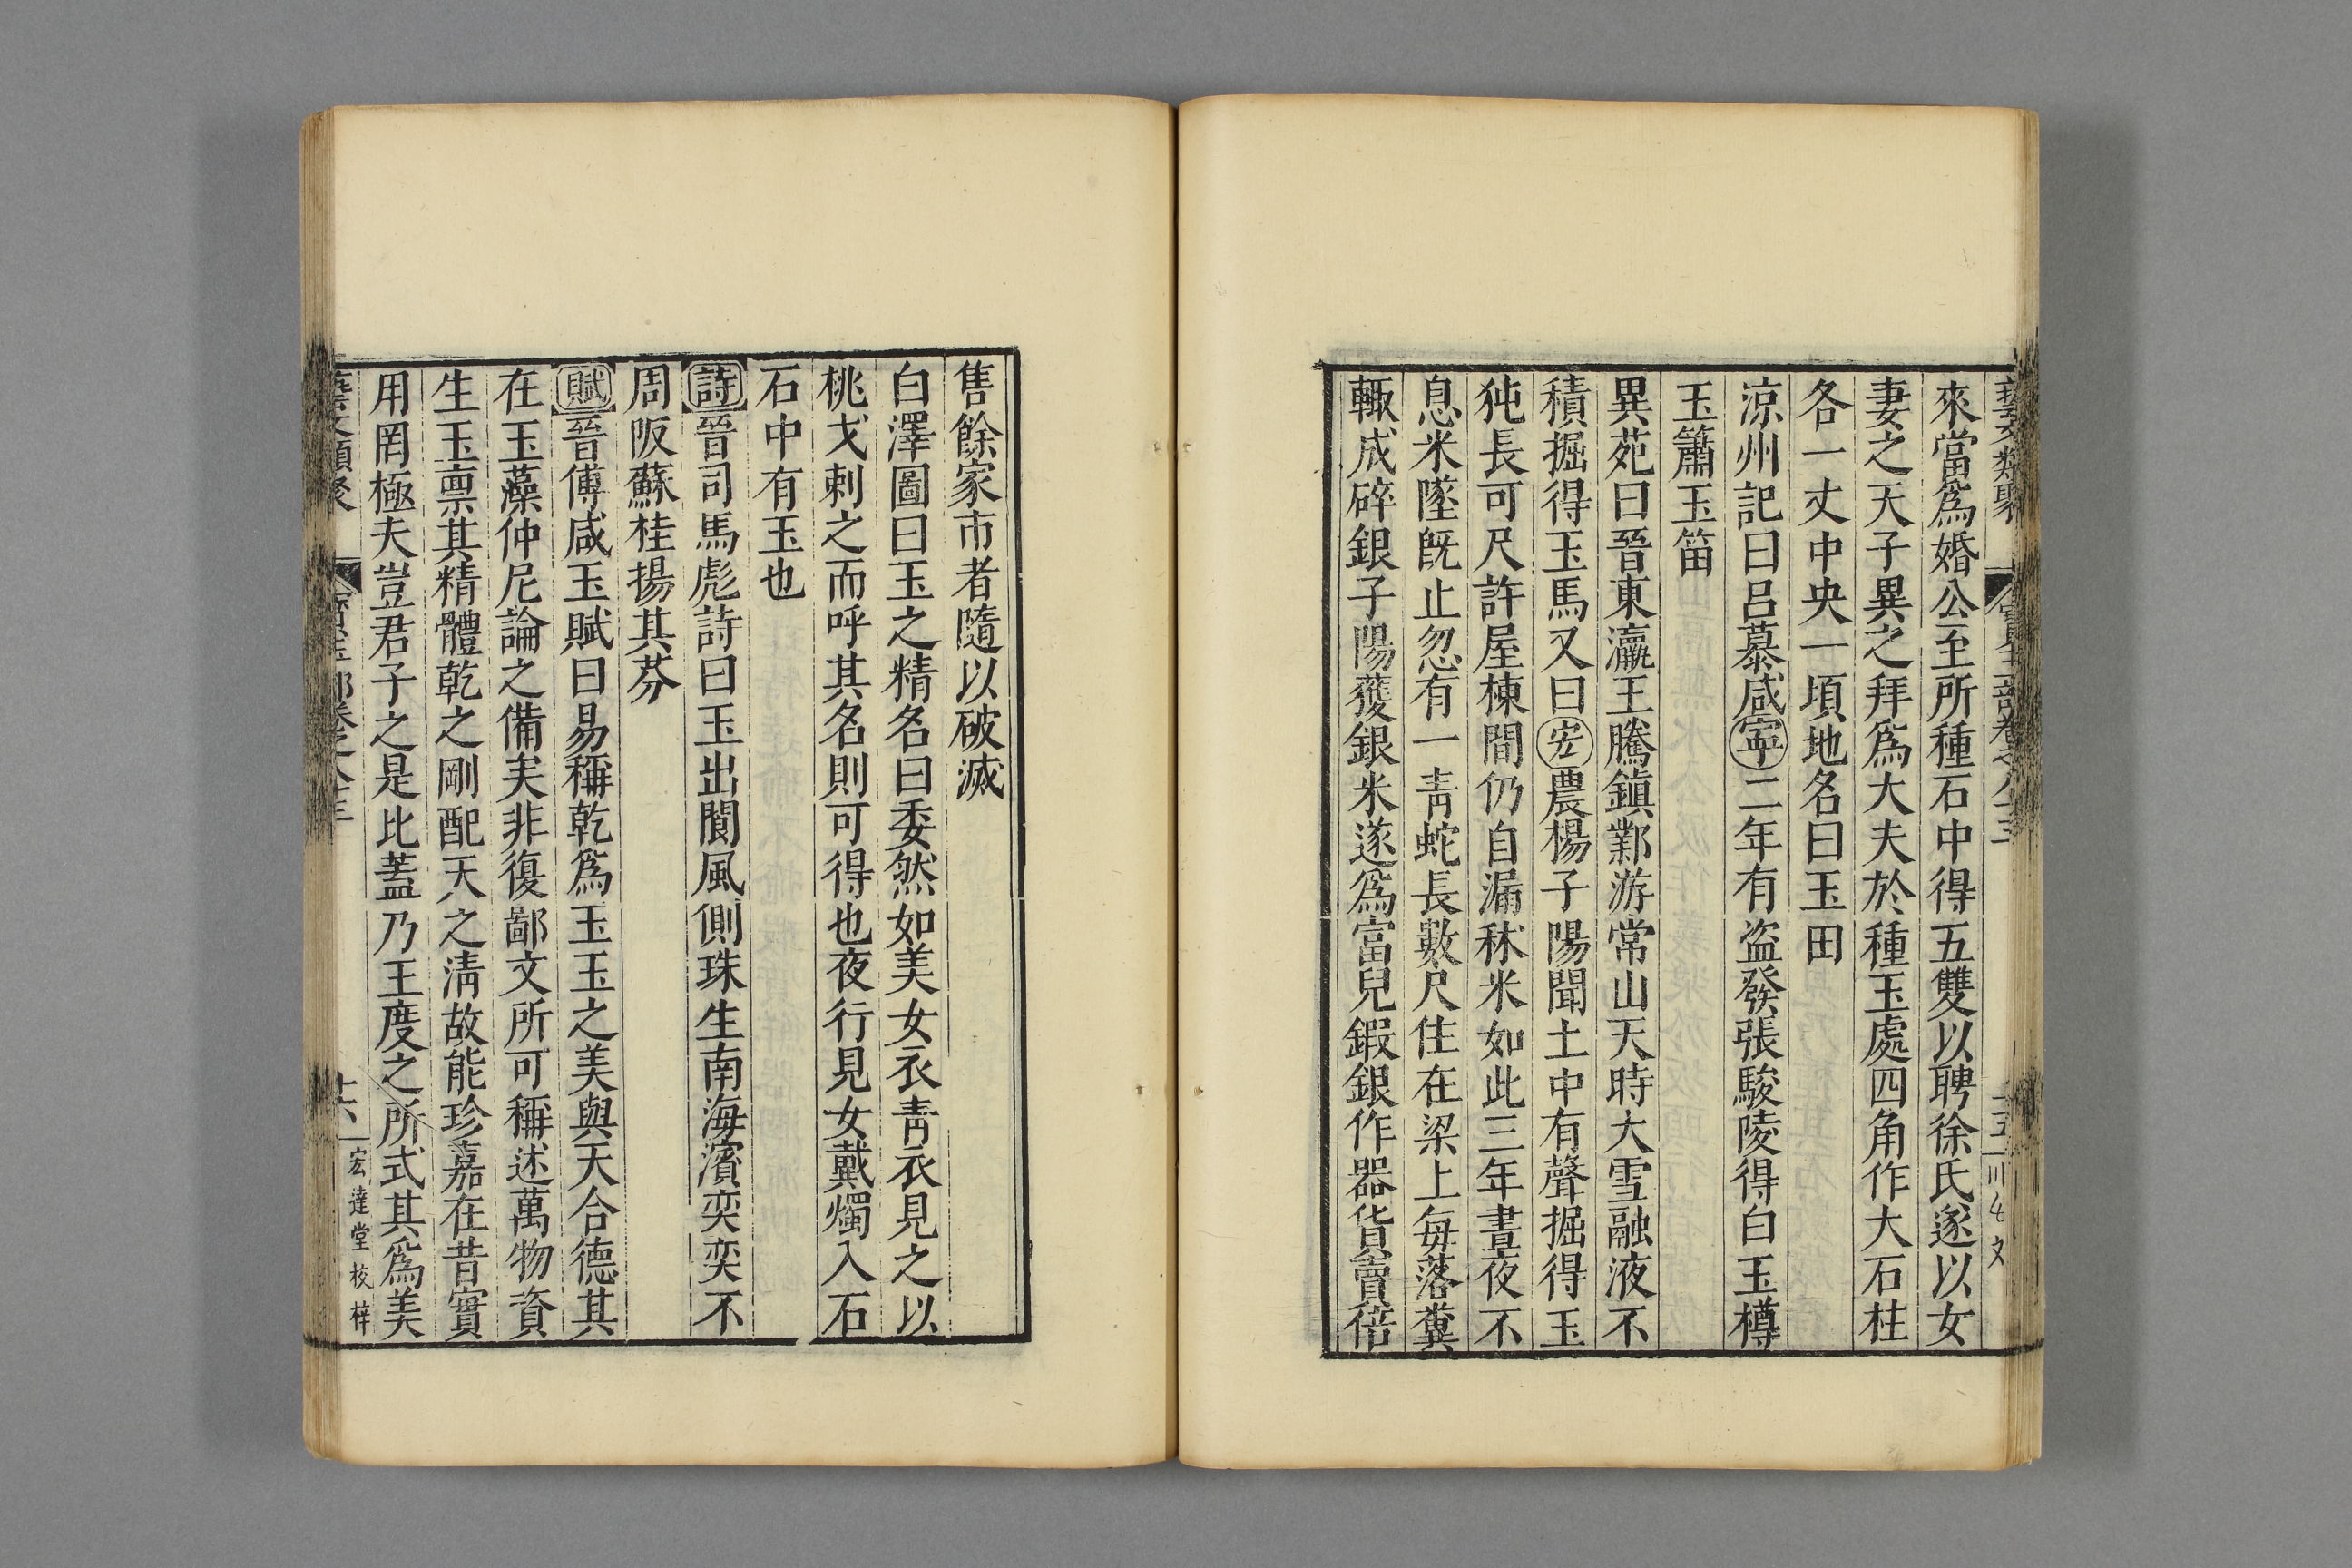 來當爲婚公至所種石中得五雙以聘徐氏遂以女
妻之天子異之拜爲大夫於種玉處四角作大石柱
各一丈中央一頃地名曰玉田
涼州記曰呂慕咸寧二年有盜發張駿陵得白玉樽
玉簫玉笛
異苑曰晉東瀛王騰鎮鄴游常山天時大雪融液不
積掘得玉馬又曰宏農楊子陽聞土中有聲掘得玉
㹠長可尺許屋棟間仍自漏秫米如此三年晝夜不
息米墜既止忽有一青蛇長數尺住在梁上每落糞
輙成碎銀子陽獲銀米遂爲富兒鍜銀作器貨賣倍
售餘家市者隨以破滅
白澤圖曰玉之精名曰委然如美女衣青衣見之以
桃戈刺之而呼其名則可得也夜行見女戴燭入石
石中有玉也
詩晉司馬彪詩曰玉出閬風側珠生南海濱奕奕不
周阪蘇桂揚其芬
賦晉傅咸玉賦曰易稱乾爲玉玉之美與天合德其
在玉藻仲尼論之備矣非復鄙文所可稱述萬物資
生玉禀其精體乾之剛配天之淸故能珍嘉在昔實
用罔極夫豈君子之是比蓋乃王度之所式其爲美
宏達堂校梓